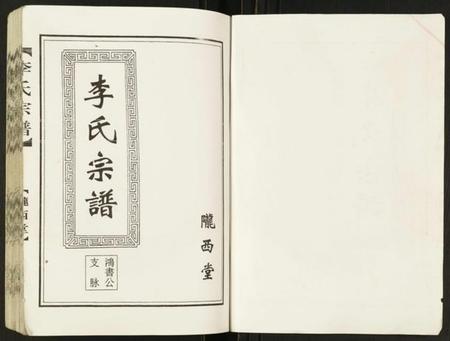 李氏宗譜
隴西堂
鴻書公
支脉
【李氏宗譜】
【隴西堂】